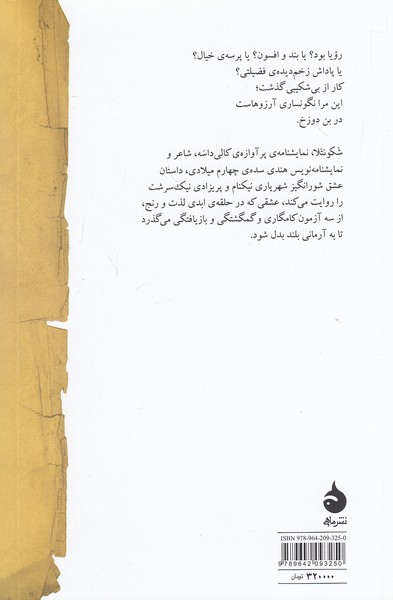 رؤیا بود؟ یا بند و افسون؟ یا پرسه‌ی خیال؟
یا پاداش زخم‌دیده‌ی فضیلتی؟
کار از بی‌شکیبی گذشت؛
این مرا نگونساری آرزوهاست
در بن دوزخ.
شکونتلا، نمایشنامه‌ی پرآوازه‌ی کالی‌داسَه، شاعر و
نمایشنامه‌نویس هندی سده‌ی چهارم میلادی، داستان
عشق شورانگیز شهریاری نیکنام و پریزادی نیک‌سرشت
را روایت می‌کند، عشقی که در حلقه‌ی ابدی لذت و رنج،
از سه آزمون کامگاری و گمگشتگی و بازیافتگی می‌گذرد
تا به آرمانی بلند بدل شود.
نشر ماهی
ISBN 978-964-209-325-0
9789642093250
۳۲۰۰۰۰ تومان